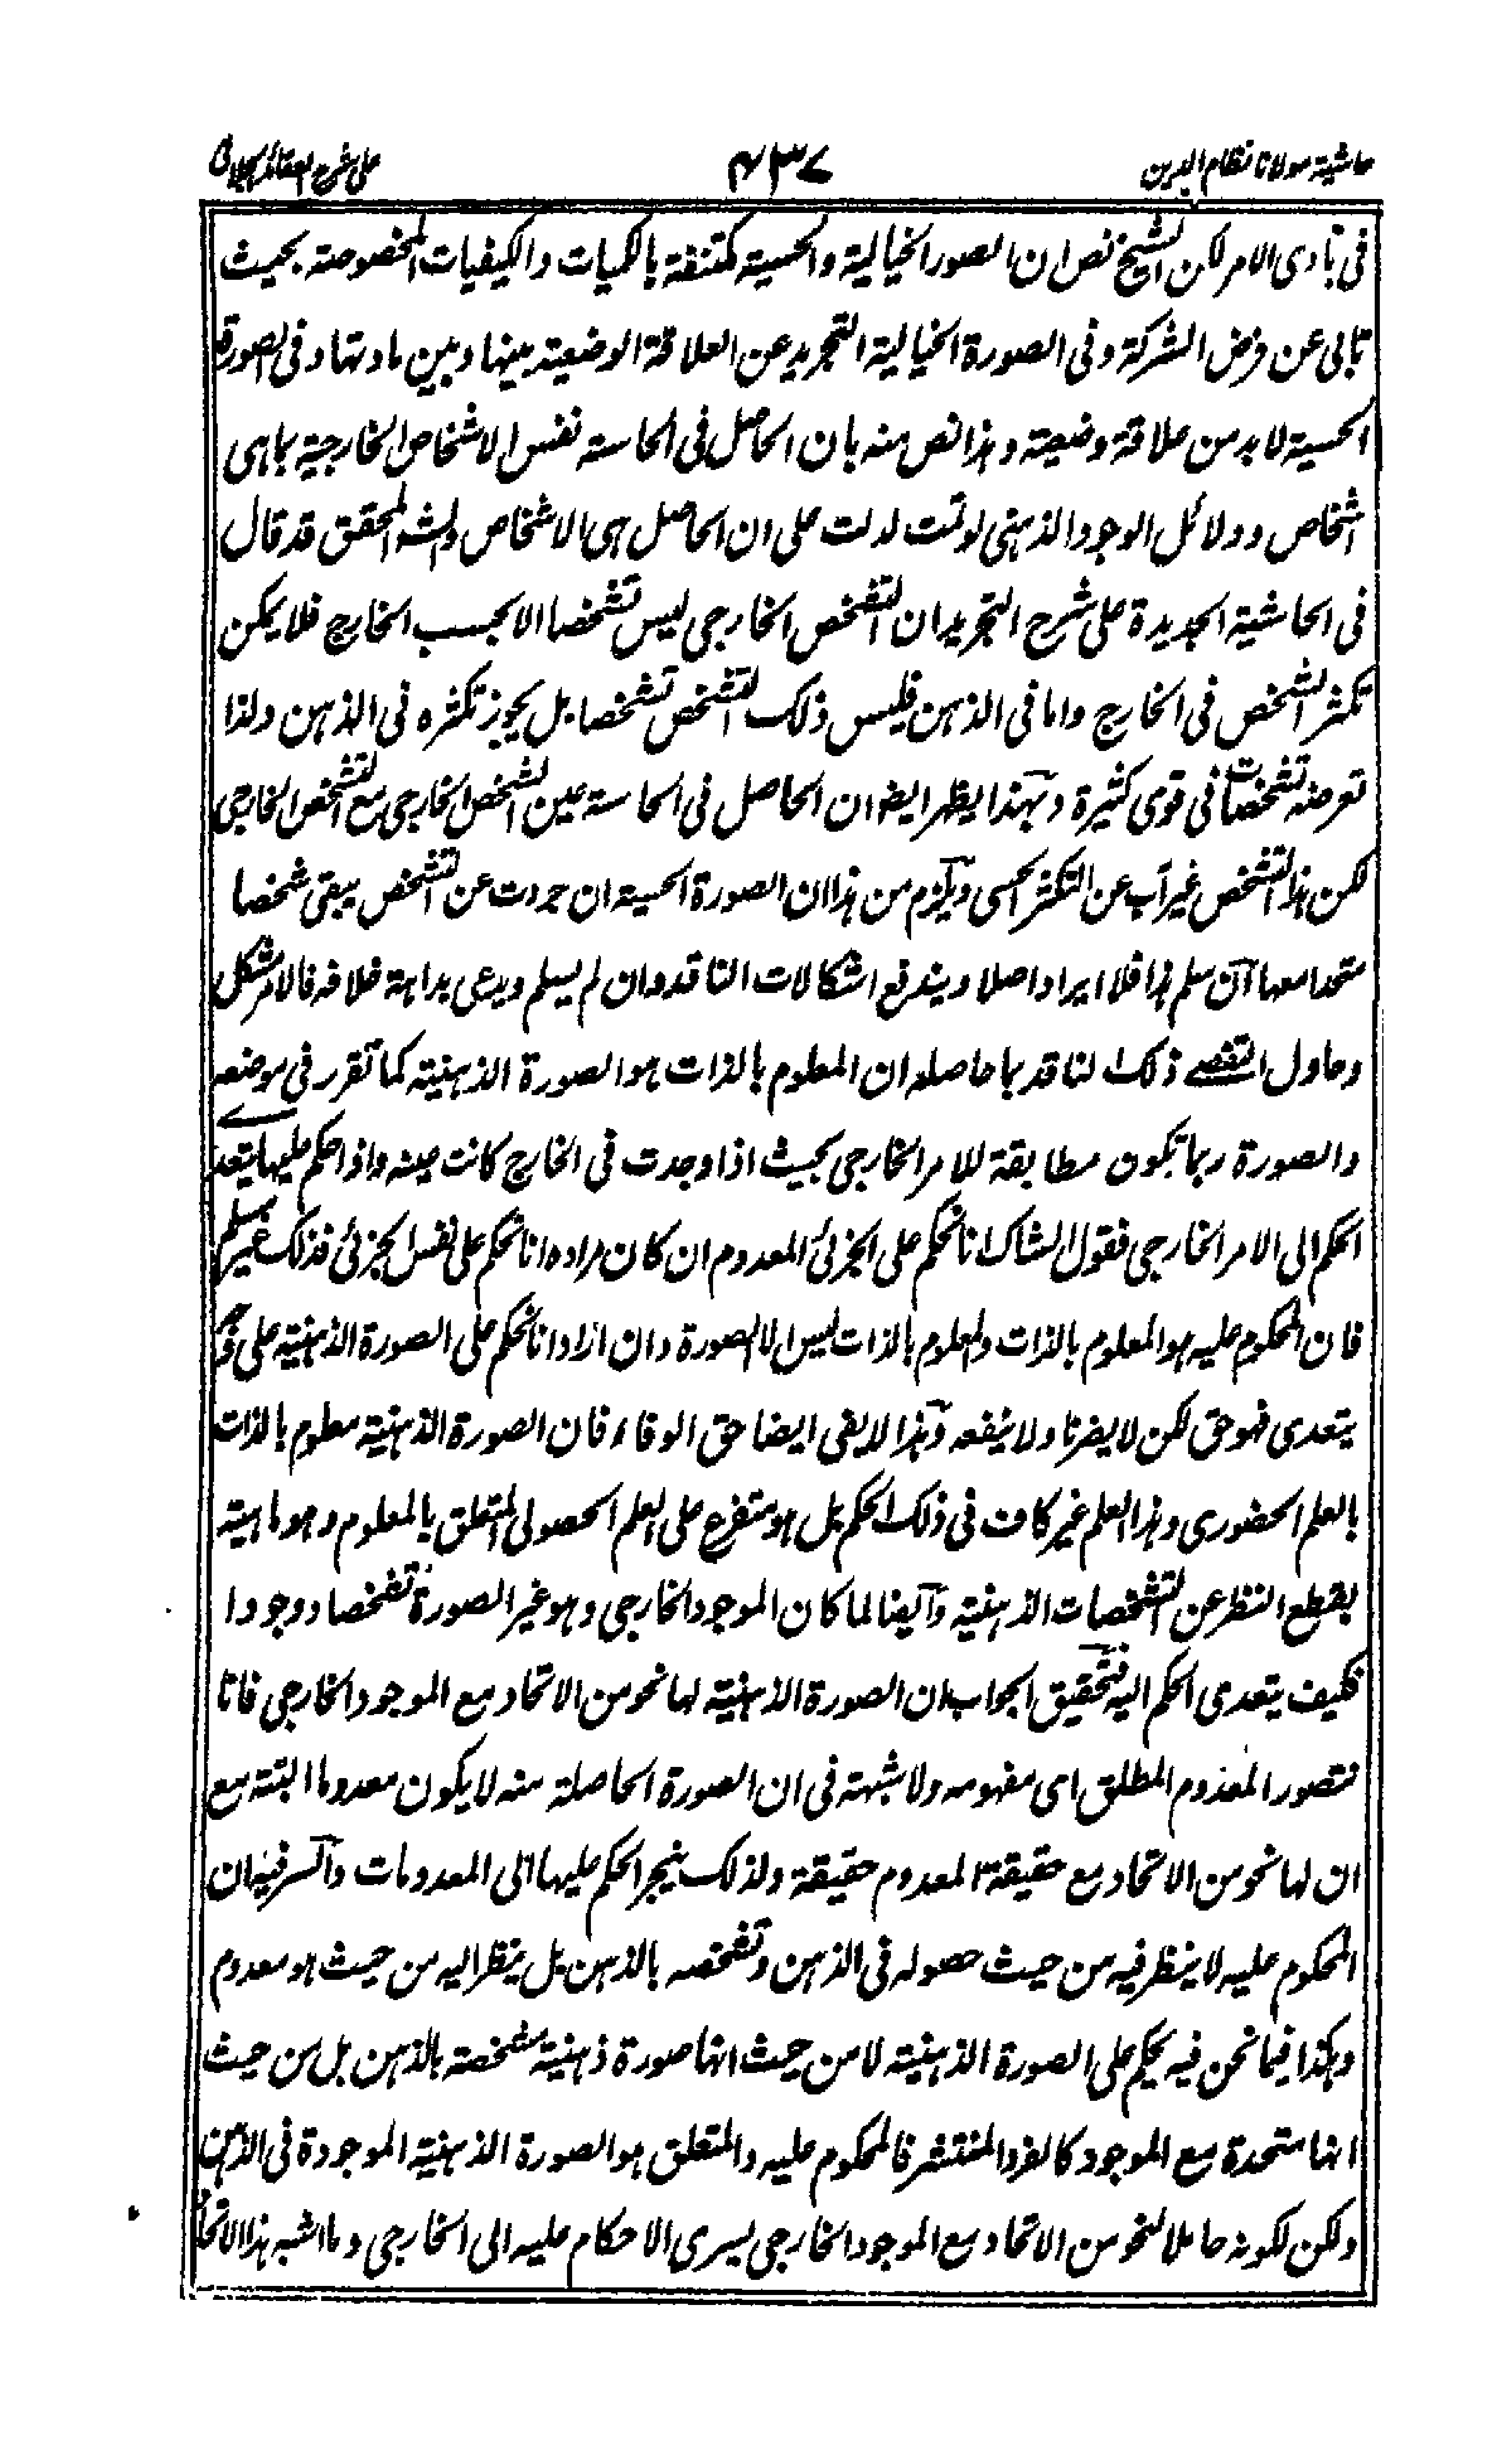 حاشية مولانا نظام الدين
٤٣٧
على شرح العقائد الجلالى
فى بادى الامر لكن الشيخ نص ان الصور الخيالية والحسية مكتنفة بالكميات والكيفيات المخصوصة بحيث
تابى عن فرض الشركة وفى الصورة الخيالية التجريد عن العلاقة الوضعية بينها وبين مادتها وفى الصورة
الحسية لا بد من علاقة وضعية وهذا نص منه بان الحاصل فى الحاسة نفس الاشخاص الخارجية بما هى
اشخاص ودلائل الوجود الذهنى لو تمت لدلت على ان الحاصل هى الاشخاص والشه المحقق قد قال
فى الحاشية الجديدة على شرح التجريد ان التشخص الخارجى ليس تشخصا الا بحسب الخارج فلا يمكن
تكثر الشخص فى الخارج واما فى الذهن فليس ذلك التشخص تشخصا بل يجوز تكثره فى الذهن ولذا
تعرضه تشخصات فى قوى كثيرة وبهذا يظهر ايضا ان الحاصل فى الحاسة عين الشخص الخارجى مع التشخص الخارجى
لكن هذا التشخص غير آب عن التكثر الحسى ويلزم من هذا ان الصورة الحسية ان جردت عن التشخص يبقى شخصا
متحدا معها ان سلم هذا فلا ايراد اصلا ويندفع اشكالات الناقد وان لم يسلم ويدعى بداهة خلافه فالامر مشكل
وحاول التفصى ذلك الناقد بما حاصله ان المعلوم بالذات هو الصورة الذهنية كما تقرر فى موضعه
والصورة ربما تكون مطابقة للامر الخارجى بحيث اذا وجدت فى الخارج كانت عينه واذا حكم عليها يتعدى
الحكم الى الامر الخارجى فقول الشاك انا نحكم على الجزئى المعدوم ان كان مراده انا نحكم على نفس الجزئى فذلك غير مسلم
فان المحكوم عليه هو المعلوم بالذات والمعلوم بالذات ليس الا الصورة وان اراد انا نحكم على الصورة الذهنية على وجه
يتعدى فهو حق لكن لا يضرنا ولا ينفعه وهذا لا يفى ايضا حق الوفاء فان الصورة الذهنية معلوم بالذات
بالعلم الحضورى وهذا العلم غير كاف فى ذلك الحكم بل هو متفرع على العلم الحصولى المتعلق بالمعلوم وهو ماهية
بقطع النظر عن التشخصات الذهنية وايضا لما كان الموجود الخارجى وهو غير الصورة تشخصا ووجودا
فكيف يتعدى الحكم اليه فتحقيق الجواب ان الصورة الذهنية لها نحو من الاتحاد مع الموجود الخارجى فانا
نتصور المعدوم المطلق اى مفهومه ولا شبهة فى ان الصورة الحاصلة منه لا يكون معدوما البتة مع
ان لها نحو من الاتحاد مع حقيقة المعدوم حقيقة ولذلك ينجر الحكم عليها الى المعدومات والسر فيه ان
المحكوم عليه لا ينظر فيه من حيث حصوله فى الذهن وتشخصه بالذهن بل ينظر اليه من حيث هو معدوم
وهكذا فيما نحن فيه يحكم على الصورة الذهنية لا من حيث انها صورة ذهنية مشخصة بالذهن بل من حيث
انها متحدة مع الموجود كالفرد المنتشر فالمحكوم عليه والمتعلق هو الصورة الذهنية الموجودة فى الذهن
ولكن لكونه حاملا لنحو من الاتحاد مع الموجود الخارجى يسرى الاحكام عليه الى الخارجى وما اشبه هذا الاتحاد